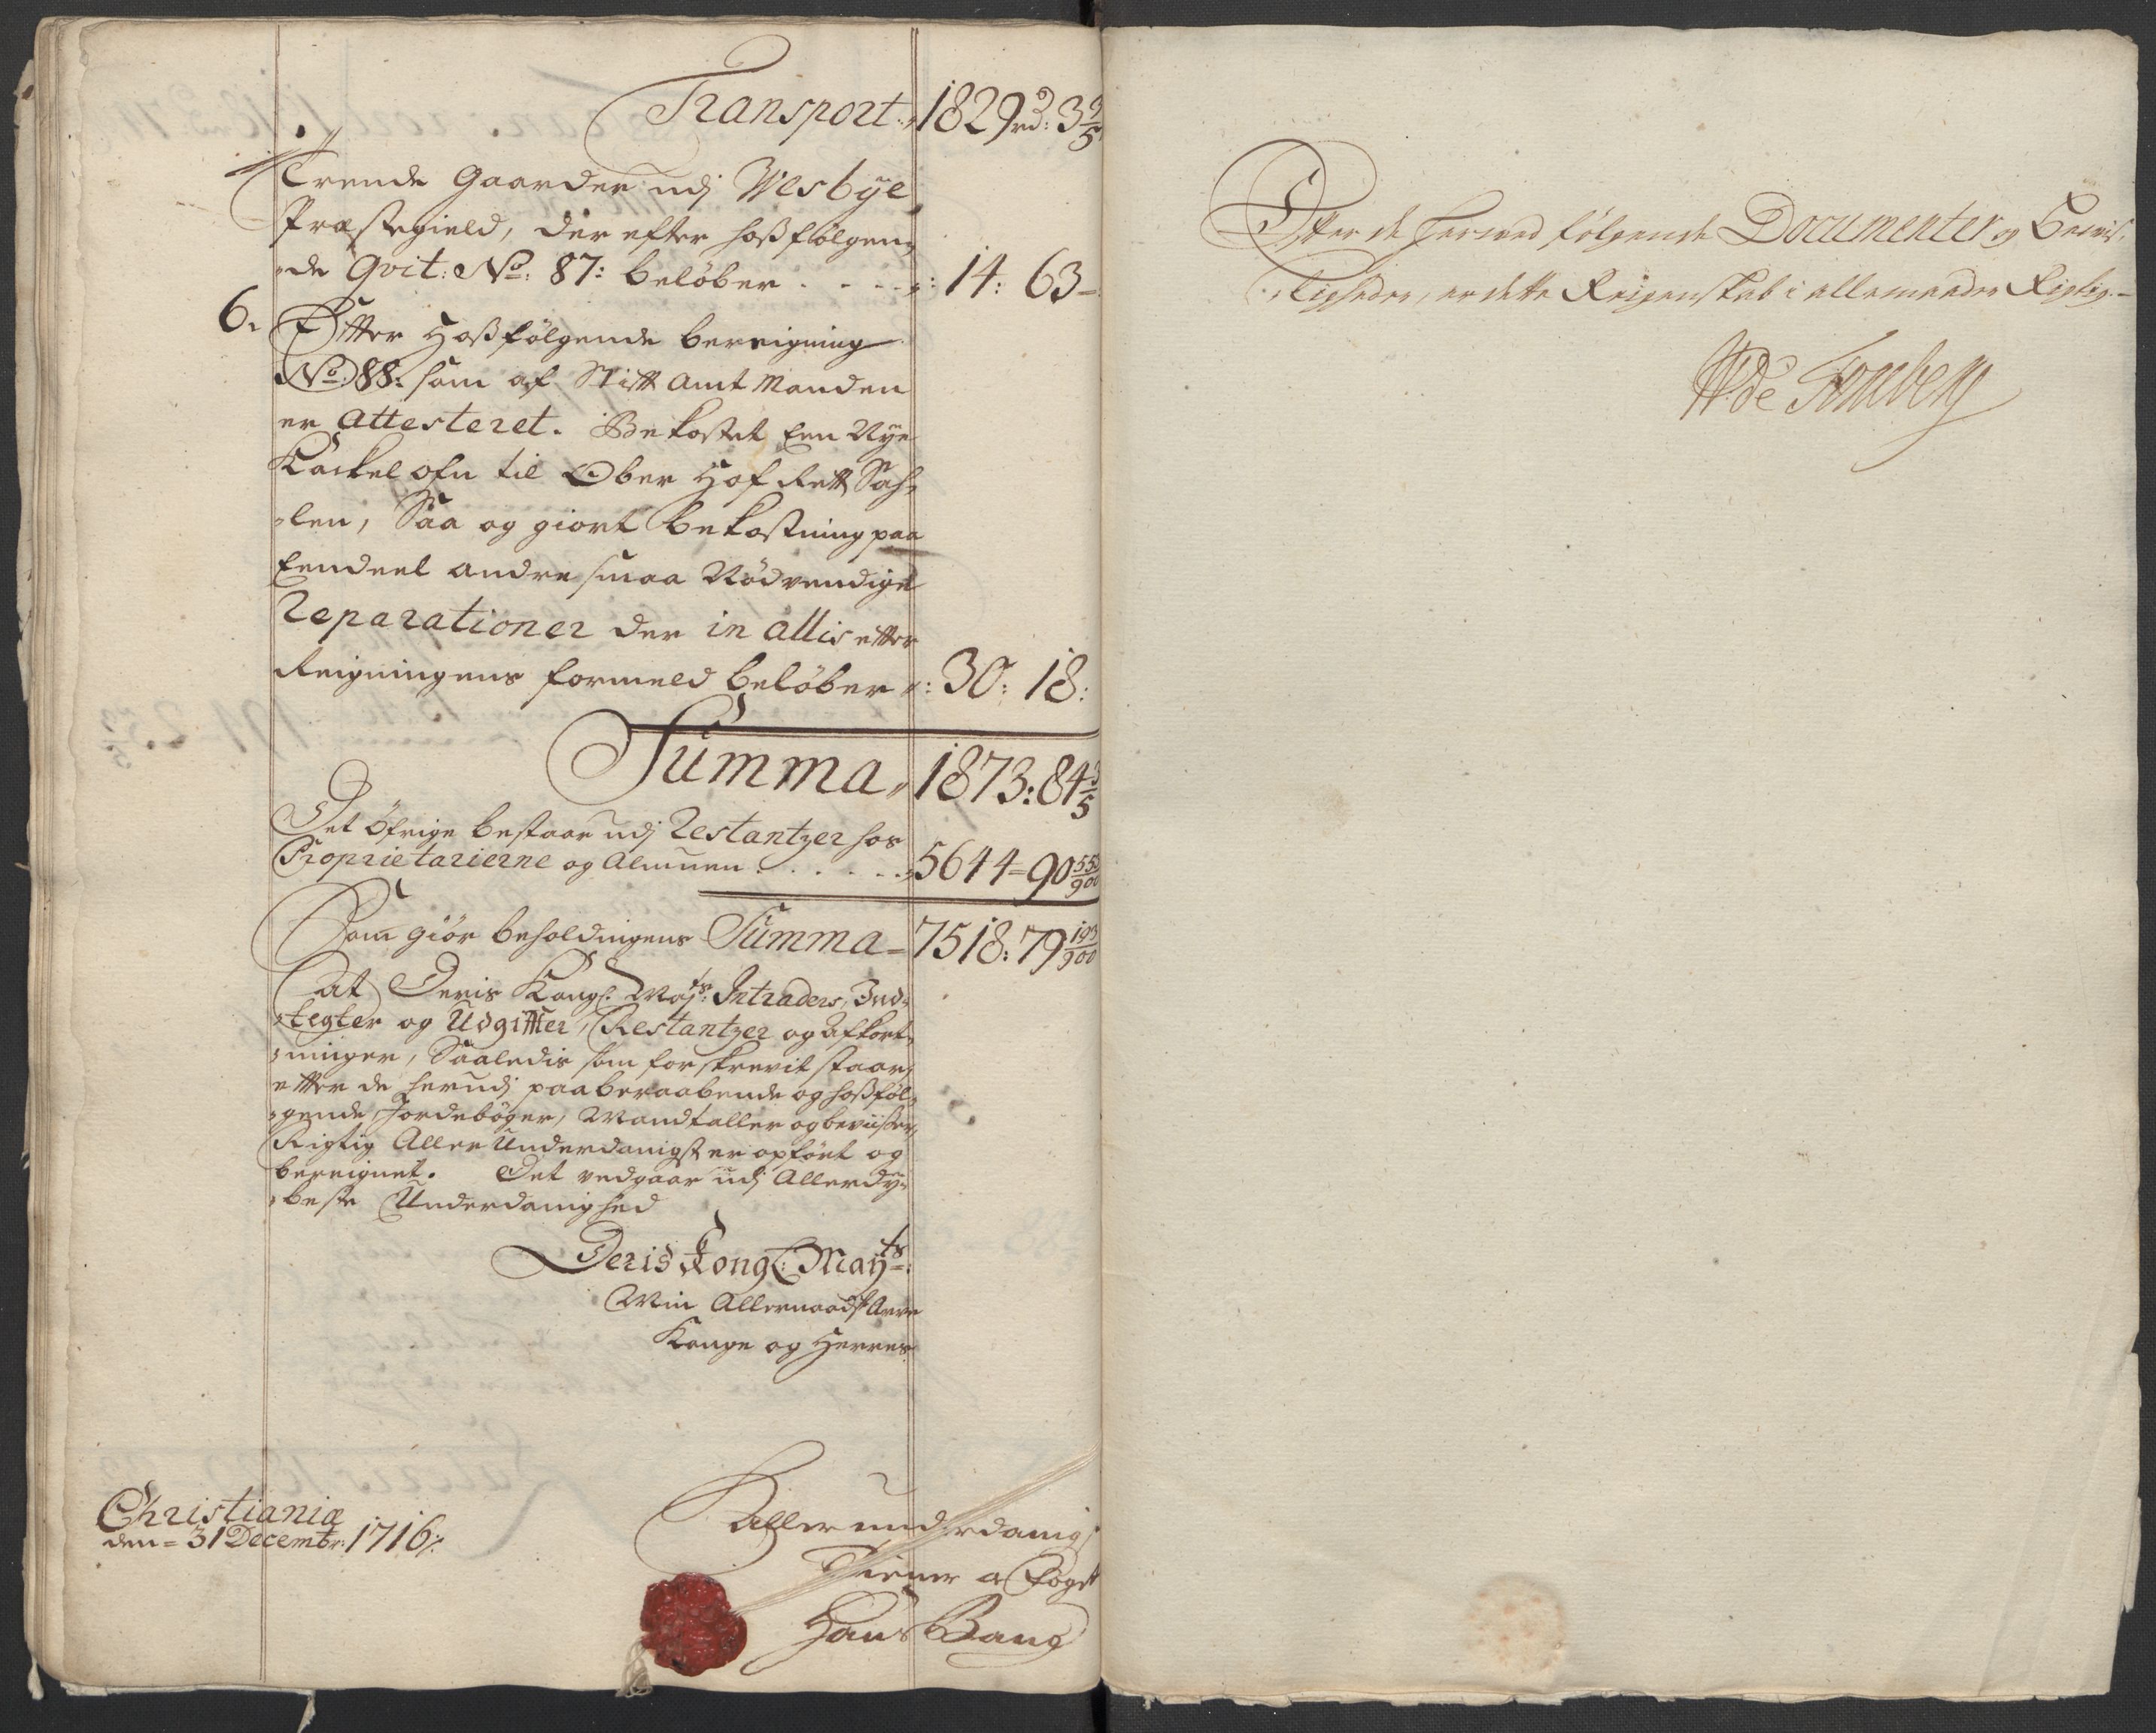 Transport. 1829 rd: 3 3/5
Trende Gaarder udj Wesbÿe
Præstegield, der efter hoßfølgen-
-de Qvit: No: 87: beløber . . . . 14: 63-
6. Efter Hoßfølgende bereigning
No: 88: som af Stift Amt Manden
er Attesteret. Bekostet Een Nÿe
Kackelofn til Ober Hof Rett Sah-
-len, Saa og giort Bekostning paa
Eendeel andre smaa Nødvendige
Reparationer der in allis efter
Reigningens formeld beløber : 30: 18:
Summa 1873: 84 3/5
Det øfrige bestaar udj Restantzer hos
Proprietarierne og Almuen . . . . . 5644 = 90 553/900
Som giør beholdningens Summa = 7518: 79 193/900
At Deris Kongl: Maÿts: Intrader, Ind-
-tegter og Udgifter, Restantzer og Afkort-
-ninger, Saaledis som forskrevit staar,
efter de herudj paaberaabende og hoßføl-
-gende Jordebøger, Mandtaller og beviißer,
Rigtig Aller Underdanigst er opført og
bereignet. Det vedgaar udj Allerdÿ-
-beste Underdanighed
Deris Kongl: Maÿts:
Min Allernaadst Arve
Konge og Herres
Christiania
den = 31 Decembr: 1716:
Allerunderdanigst
Tiener og Foget
Hans Bang
Efter de hermed følgende Documenter og Beviis-
-ligheder, er dette Reigenskab i allemaader Rigtig.-